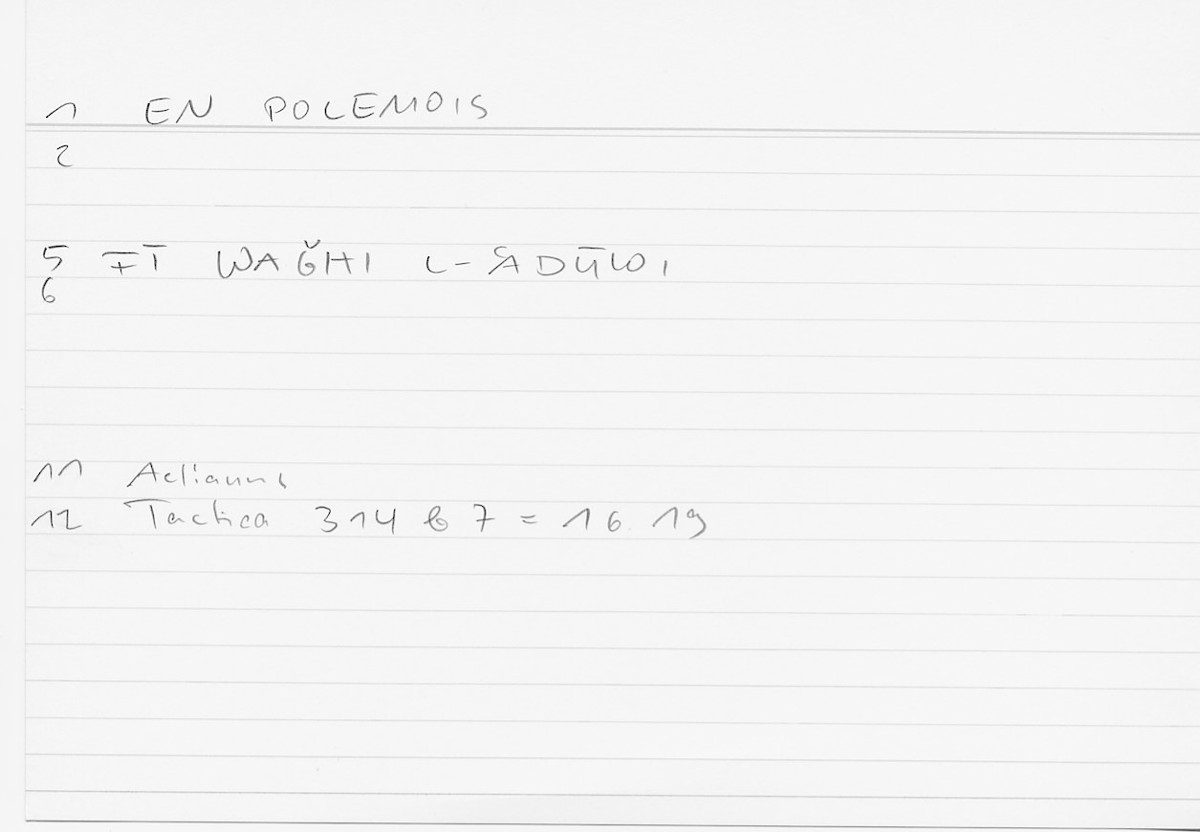 1 EN POLEMOIS
2
5 FĪ WAǦHI L-ʿADŪWI
6
11 Aelianus
12 Tactica 314 b 7 = 16.19